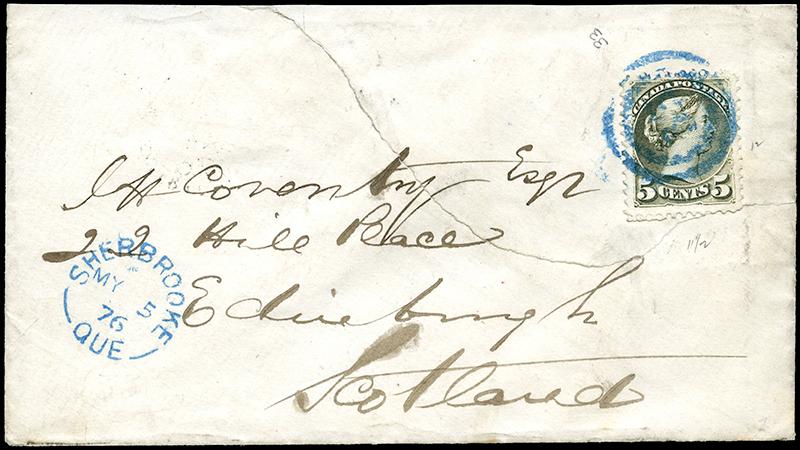 33
CANADA POSTAGE
5 CENTS 5
12
11½
Coventry Esqr
22 Hill Place
Edinburgh
Scotland
SHERBROOKE
MY 5
76
QUE